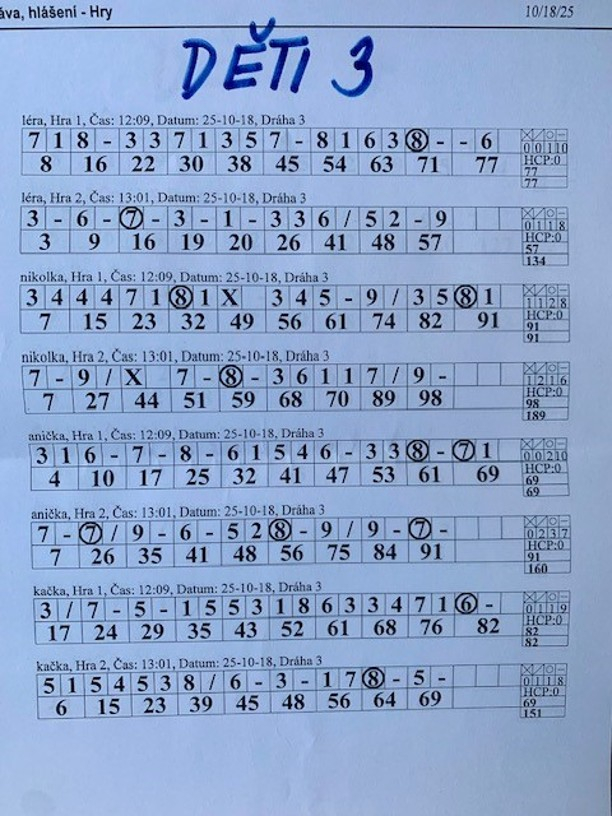 áva, hlášení - Hry 10/18/25
DĚTI 3
léra, Hra 1, Čas: 12:09, Datum: 25-10-18, Dráha 3
7 1 8 - 3 3 7 1 3 5 7 - 8 1 6 3 8 - - 6
8 16 22 30 38 45 54 63 71 77
0 0 1 10
HCP:0
77
77
léra, Hra 2, Čas: 13:01, Datum: 25-10-18, Dráha 3
3 - 6 - 7 - 3 - 1 - 3 3 6 / 5 2 - 9
3 9 16 19 20 26 41 48 57
0 1 1 8
HCP:0
57
134
nikolka, Hra 1, Čas: 12:09, Datum: 25-10-18, Dráha 3
3 4 4 4 7 1 8 1 X 3 4 5 - 9 / 3 5 8 1
7 15 23 32 49 56 61 74 82 91
1 1 2 8
HCP:0
91
91
nikolka, Hra 2, Čas: 13:01, Datum: 25-10-18, Dráha 3
7 - 9 / X 7 - 8 - 3 6 1 1 7 / 9 -
7 27 44 51 59 68 70 89 98
1 2 1 6
HCP:0
98
189
anička, Hra 1, Čas: 12:09, Datum: 25-10-18, Dráha 3
3 1 6 - 7 - 8 - 6 1 5 4 6 - 3 3 8 - 7 1
4 10 17 25 32 41 47 53 61 69
0 0 2 10
HCP:0
69
69
anička, Hra 2, Čas: 13:01, Datum: 25-10-18, Dráha 3
7 - 7 / 9 - 6 - 5 2 8 - 9 / 9 - 7 -
7 26 35 41 48 56 75 84 91
0 2 3 7
HCP:0
91
160
kačka, Hra 1, Čas: 12:09, Datum: 25-10-18, Dráha 3
3 / 7 - 5 - 1 5 5 3 1 8 6 3 3 4 7 1 6 -
17 24 29 35 43 52 61 68 76 82
0 1 1 9
HCP:0
82
82
kačka, Hra 2, Čas: 13:01, Datum: 25-10-18, Dráha 3
5 1 5 4 5 3 8 / 6 - 3 - 1 7 8 - 5 -
6 15 23 39 45 48 56 64 69
0 1 1 8
HCP:0
69
151